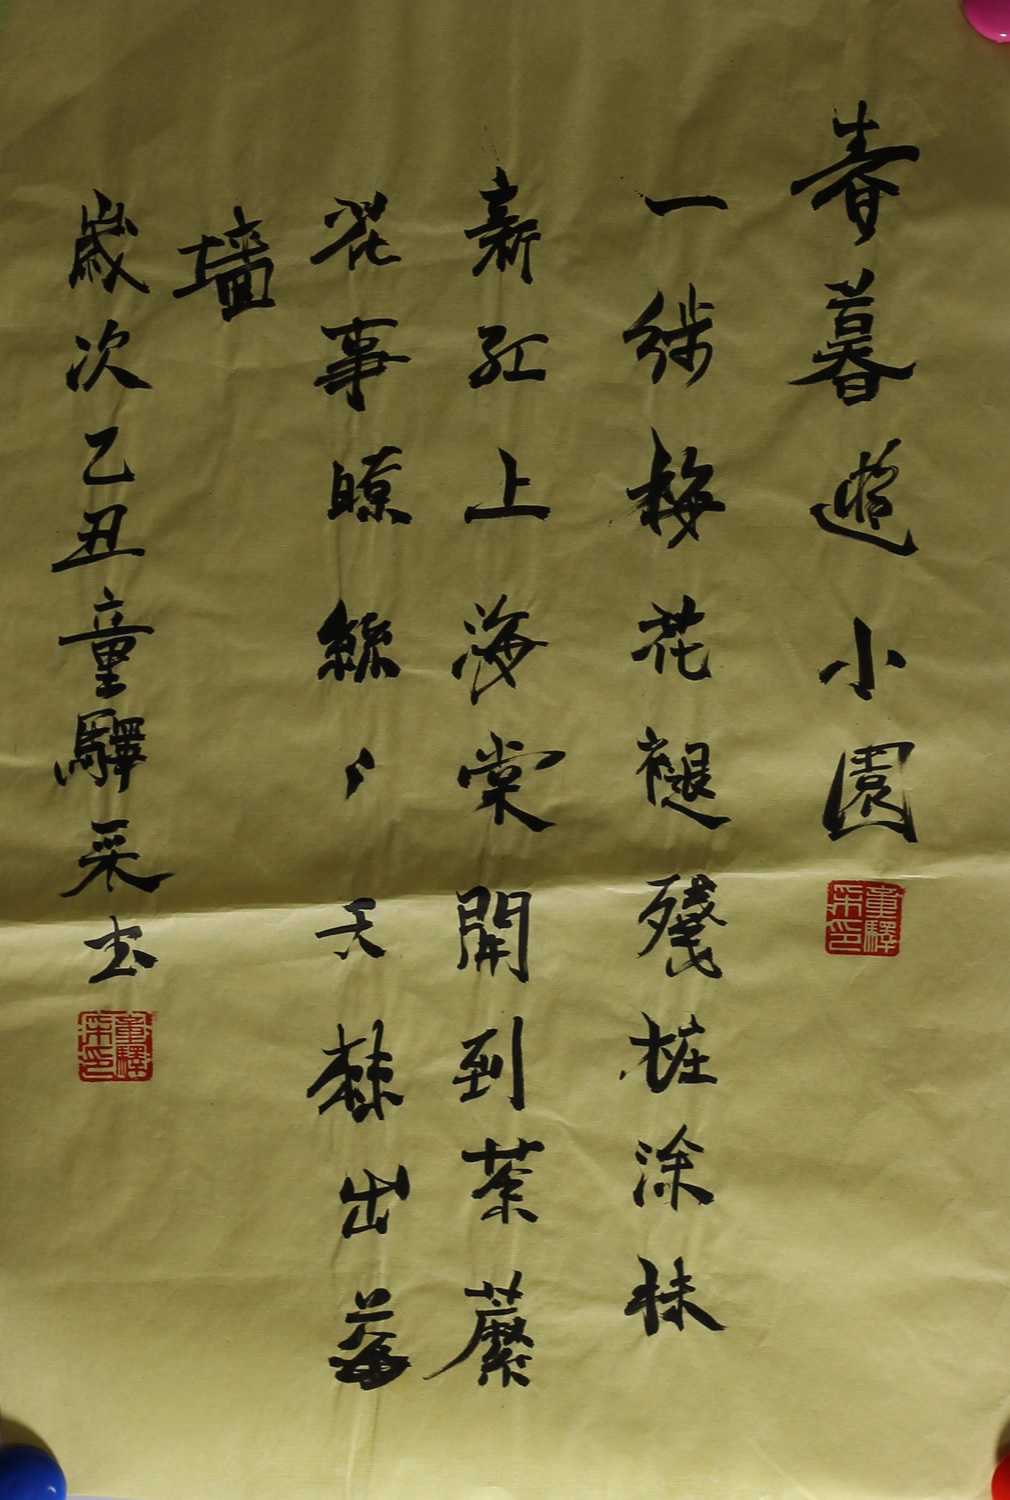 春暮遊小園
童驛采印
一從梅花褪殘桩涂抹
新紅上海棠開到荼蘼
花事瞭絲々天棘出莓
墻
歲次乙丑童驛采书
童驛采印